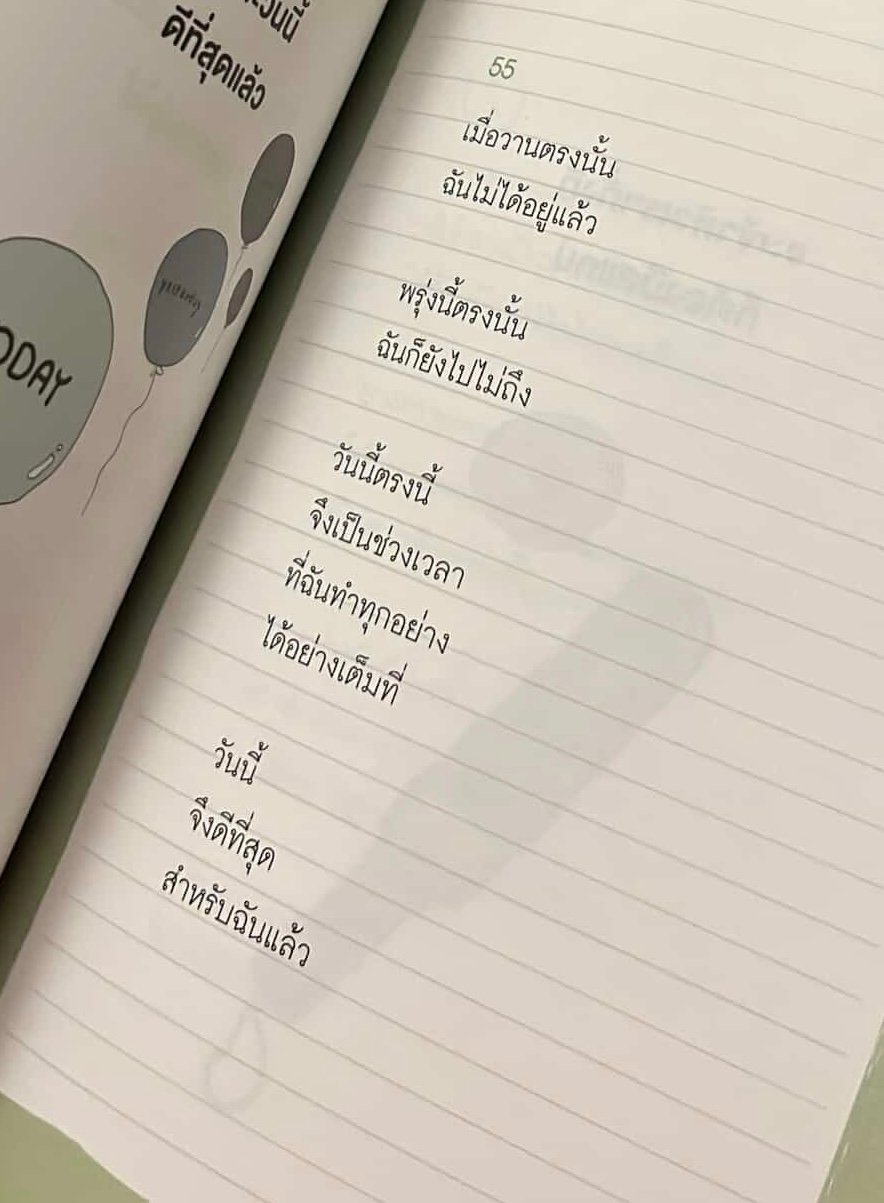 ดีที่สุดแล้ว
YESTERDAY
55
เมื่อวานตรงนั้น
ฉันไม่ได้อยู่แล้ว
พรุ่งนี้ตรงนั้น
ฉันก็ยังไปไม่ถึง
วันนี้ตรงนี้
จึงเป็นช่วงเวลา
ที่ฉันทำทุกอย่าง
ได้อย่างเต็มที่
วันนี้
จึงดีที่สุด
สำหรับฉันแล้ว